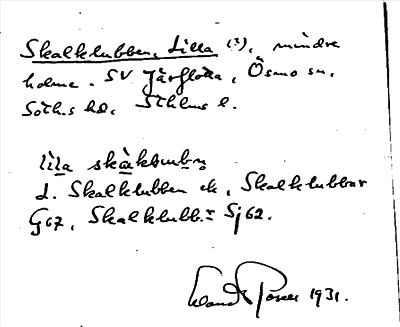 Skalklubben, Lilla (3), mindre
holme. SV Järflotta, Ösmo sn,
Soth.s hd, Sthlms l.
lìla skàlklub̥n̥
d. Skalklubben ek, Skalklubbar
G67, Skalklubb.r Sj62.
1931.